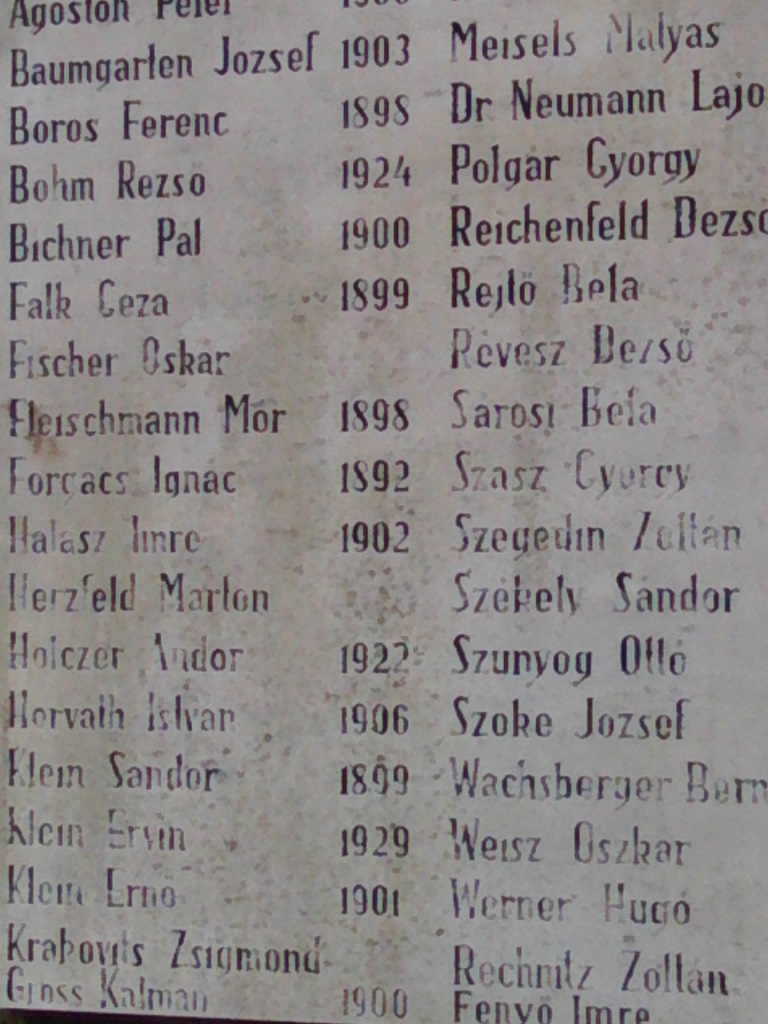 Agoston Peter
Baumgarten Jozsef 1903
Boros Ferenc 1898
Bohm Rezso 1924
Bichner Pal 1900
Falk Geza 1899
Fischer Oskar
Fleischmann Mor 1898
Forgacs Ignac 1892
Halasz Imre 1902
Herzfeld Marton
Holczer Andor 1922
Horvath Istvan 1906
Klein Sandor 1899
Klein Ervin 1929
Klein Erno 1901
Krakovits Zsigmond
Gross Kalman 1900
Meisels Matyas
Dr Neumann Lajo
Polgár Gyorgy
Reichenfeld Dezso
Rejtö Bela
Révesz Dezsö
Sarosi Bela
Szasz Gyorgy
Szegedin Zoltán
Székely Sándor
Szunyog Otto
Szoke Jozsef
Wachsberger Bern
Weisz Oszkar
Werner Hugó
Rechnitz Zoltán
Fenyö Imre